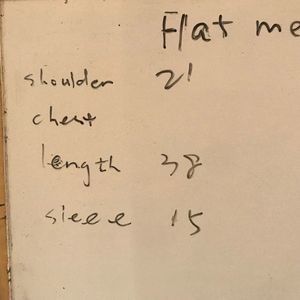 Flat me
shoulder 21
chest
length 38
sleee 15